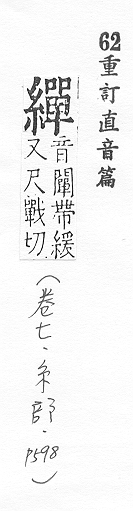 62重訂直音篇
繟音闡帶緩
又尺戰切
(卷七、糸部.
P598)